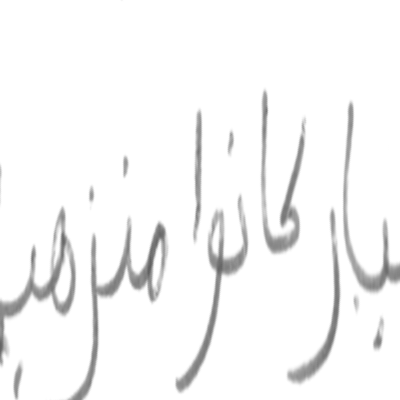 بار كانوا منزهي